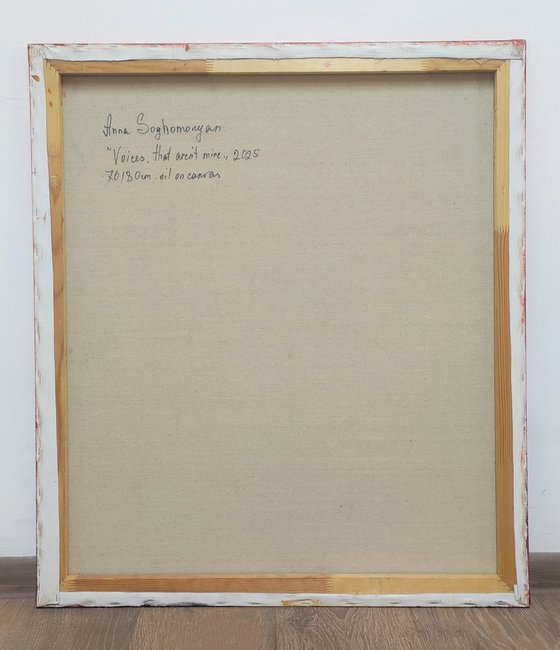 Anna Soghomonyan
"Voices, that aren't mine., 2025
70/80cm. oil on canvas